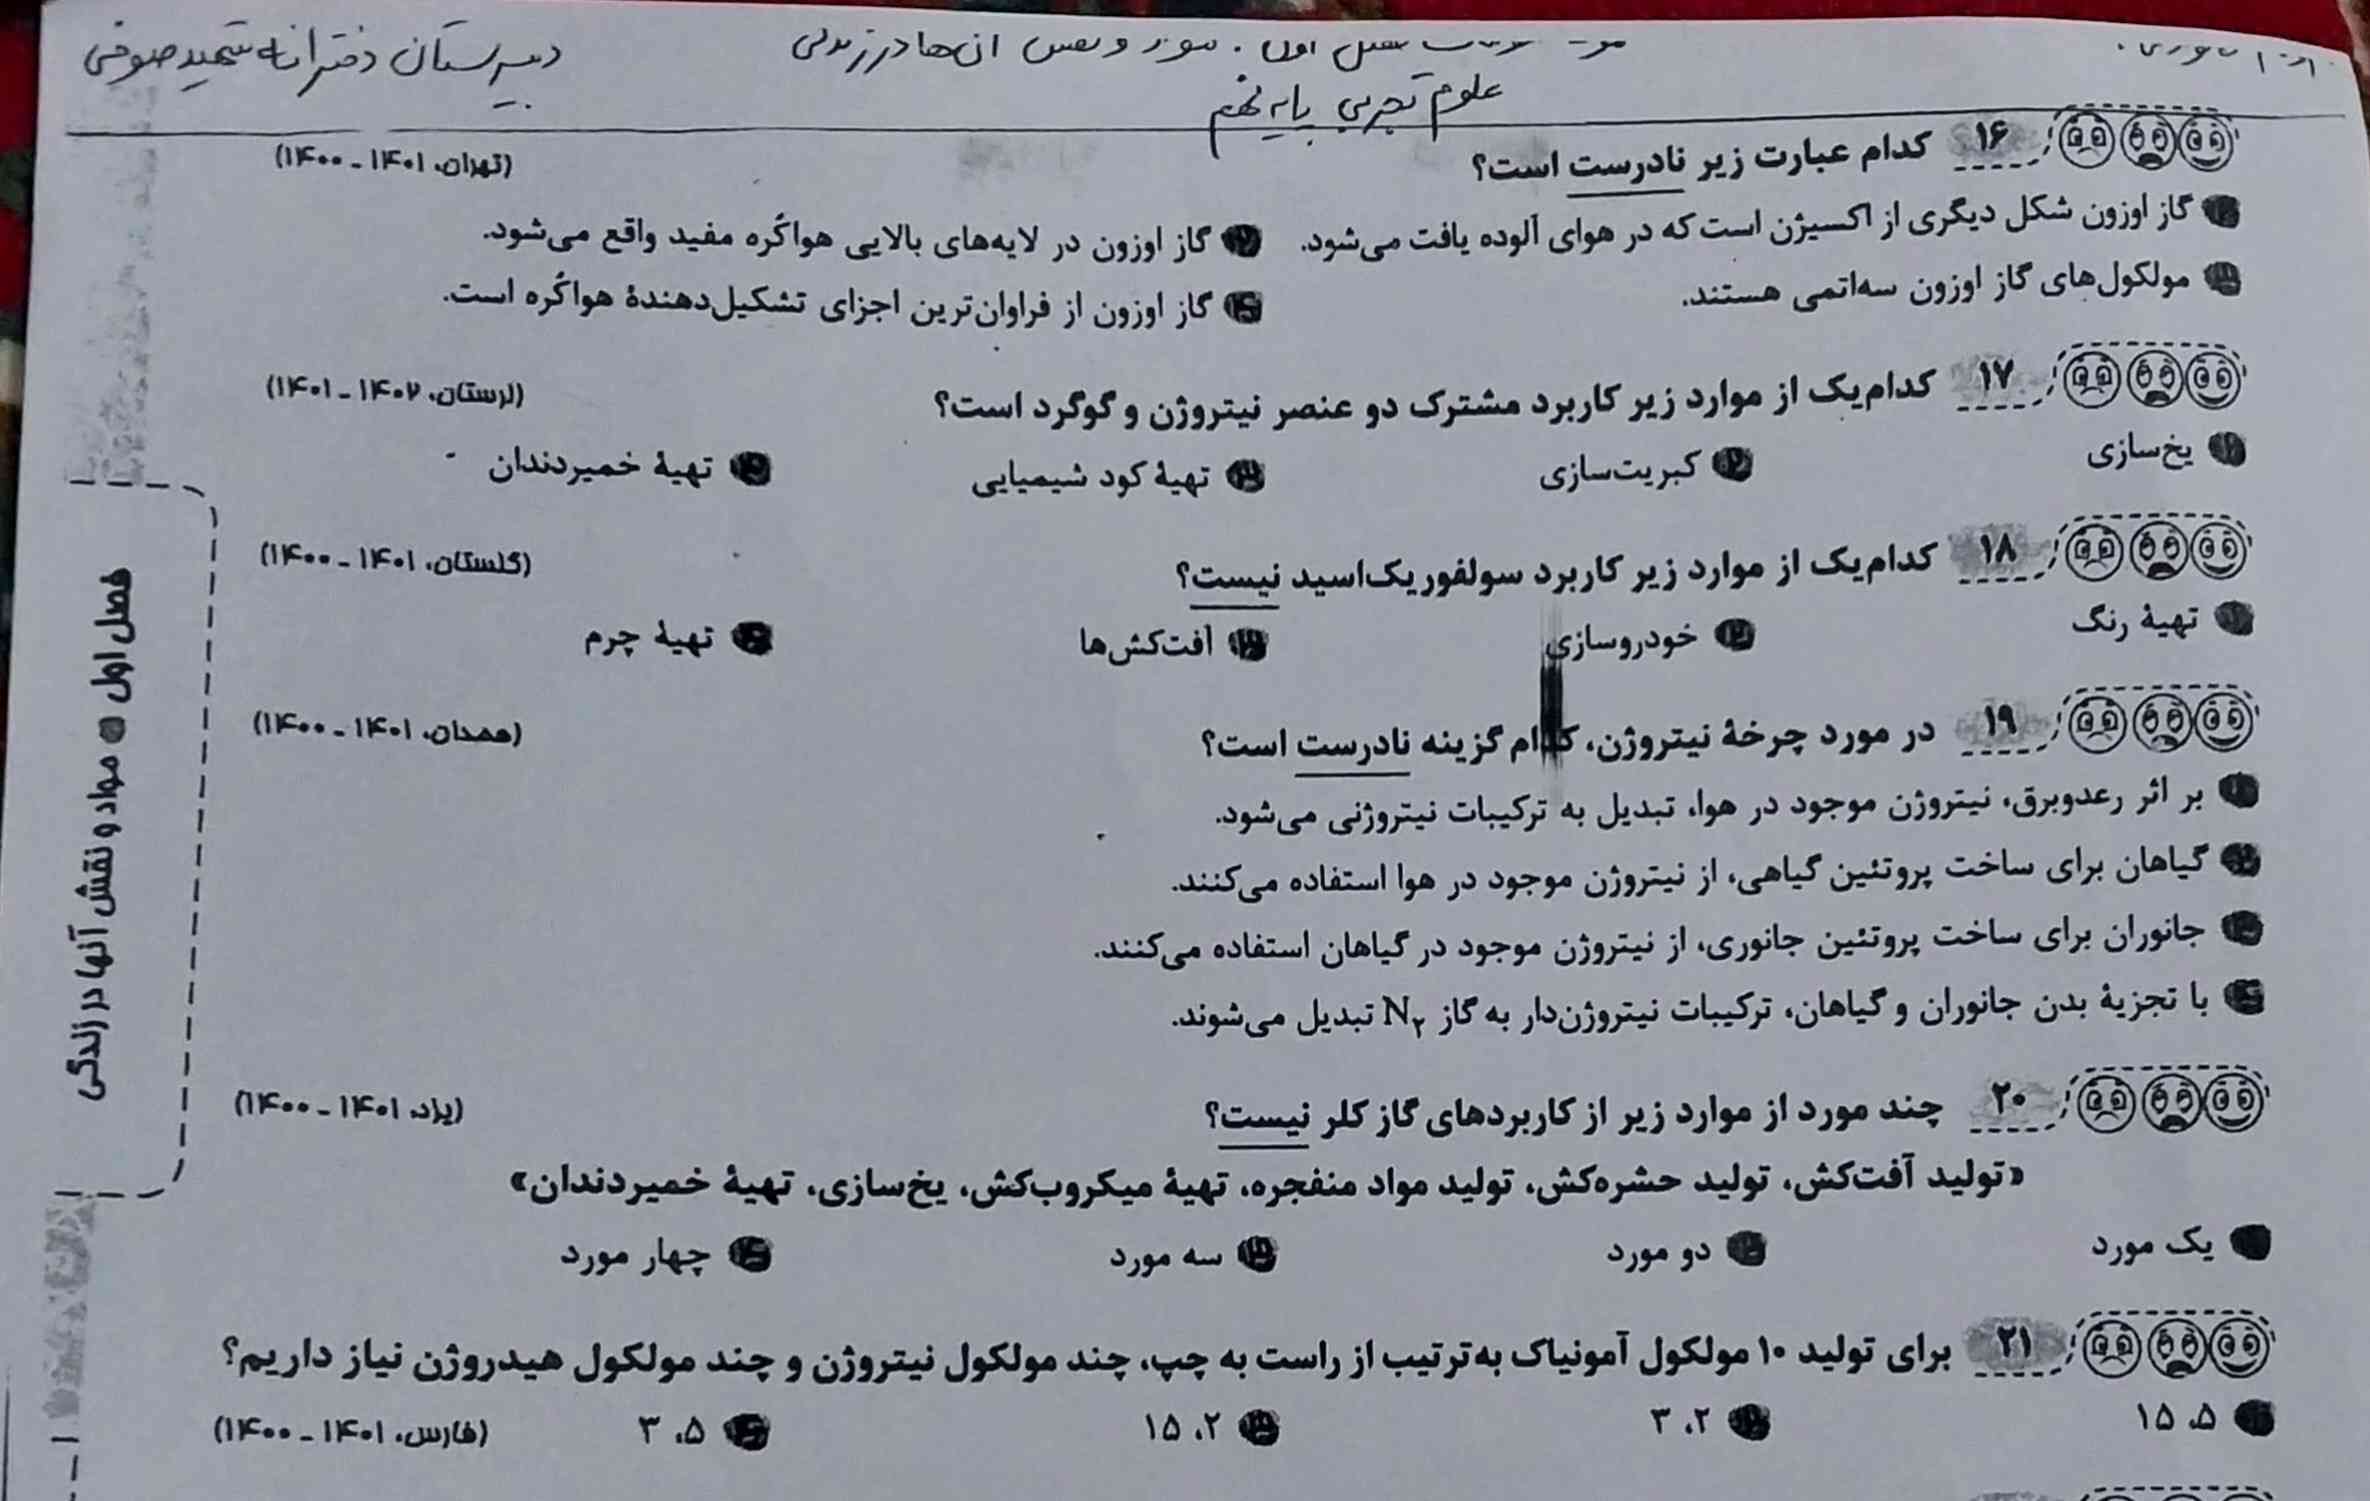 دبیرستان دخترانه شهید صوفی
علوم تجربی پایه نهم
۱۶ کدام عبارت زیر نادرست است؟ (تهران، ۱۴۰۱ - ۱۴۰۰)
۱ گاز اوزون شکل دیگری از اکسیژن است که در هوای آلوده یافت می‌شود. ۲ گاز اوزون در لایه‌های بالایی هواکُره مفید واقع می‌شود.
۳ مولکول‌های گاز اوزون سه‌اتمی هستند. ۴ گاز اوزون از فراوان‌ترین اجزای تشکیل‌دهندهٔ هواکُره است.
۱۷ کدام‌یک از موارد زیر کاربرد مشترک دو عنصر نیتروژن و گوگرد است؟ (لرستان، ۱۴۰۲ - ۱۴۰۱)
۱ یخ‌سازی ۲ کبریت‌سازی ۳ تهیهٔ کود شیمیایی ۴ تهیهٔ خمیردندان
۱۸ کدام‌یک از موارد زیر کاربرد سولفوریک‌اسید نیست؟ (گلستان، ۱۴۰۱ - ۱۴۰۰)
۱ تهیهٔ رنگ ۲ خودروسازی ۳ آفت‌کش‌ها ۴ تهیهٔ چرم
۱۹ در مورد چرخهٔ نیتروژن، کدام گزینه نادرست است؟ (همدان، ۱۴۰۱ - ۱۴۰۰)
۱ بر اثر رعدوبرق، نیتروژن موجود در هوا، تبدیل به ترکیبات نیتروژنی می‌شود.
۲ گیاهان برای ساخت پروتئین گیاهی، از نیتروژن موجود در هوا استفاده می‌کنند.
۳ جانوران برای ساخت پروتئین جانوری، از نیتروژن موجود در گیاهان استفاده می‌کنند.
۴ با تجزیهٔ بدن جانوران و گیاهان، ترکیبات نیتروژن‌دار به گاز N۲ تبدیل می‌شوند.
۲۰ چند مورد از موارد زیر از کاربردهای گاز کلر نیست؟ (یزد، ۱۴۰۱ - ۱۴۰۰)
«تولید آفت‌کش، تولید حشره‌کش، تولید مواد منفجره، تهیهٔ میکروب‌کش، یخ‌سازی، تهیهٔ خمیردندان»
۱ یک مورد ۲ دو مورد ۳ سه مورد ۴ چهار مورد
۲۱ برای تولید ۱۰ مولکول آمونیاک به‌ترتیب از راست به چپ، چند مولکول نیتروژن و چند مولکول هیدروژن نیاز داریم؟
۱ ۵، ۱۵ ۲ ۲، ۳ ۳ ۲، ۱۵ ۴ ۵، ۳ (فارس، ۱۴۰۱ - ۱۴۰۰)
فصل اول ● مواد و نقش آنها در زندگی